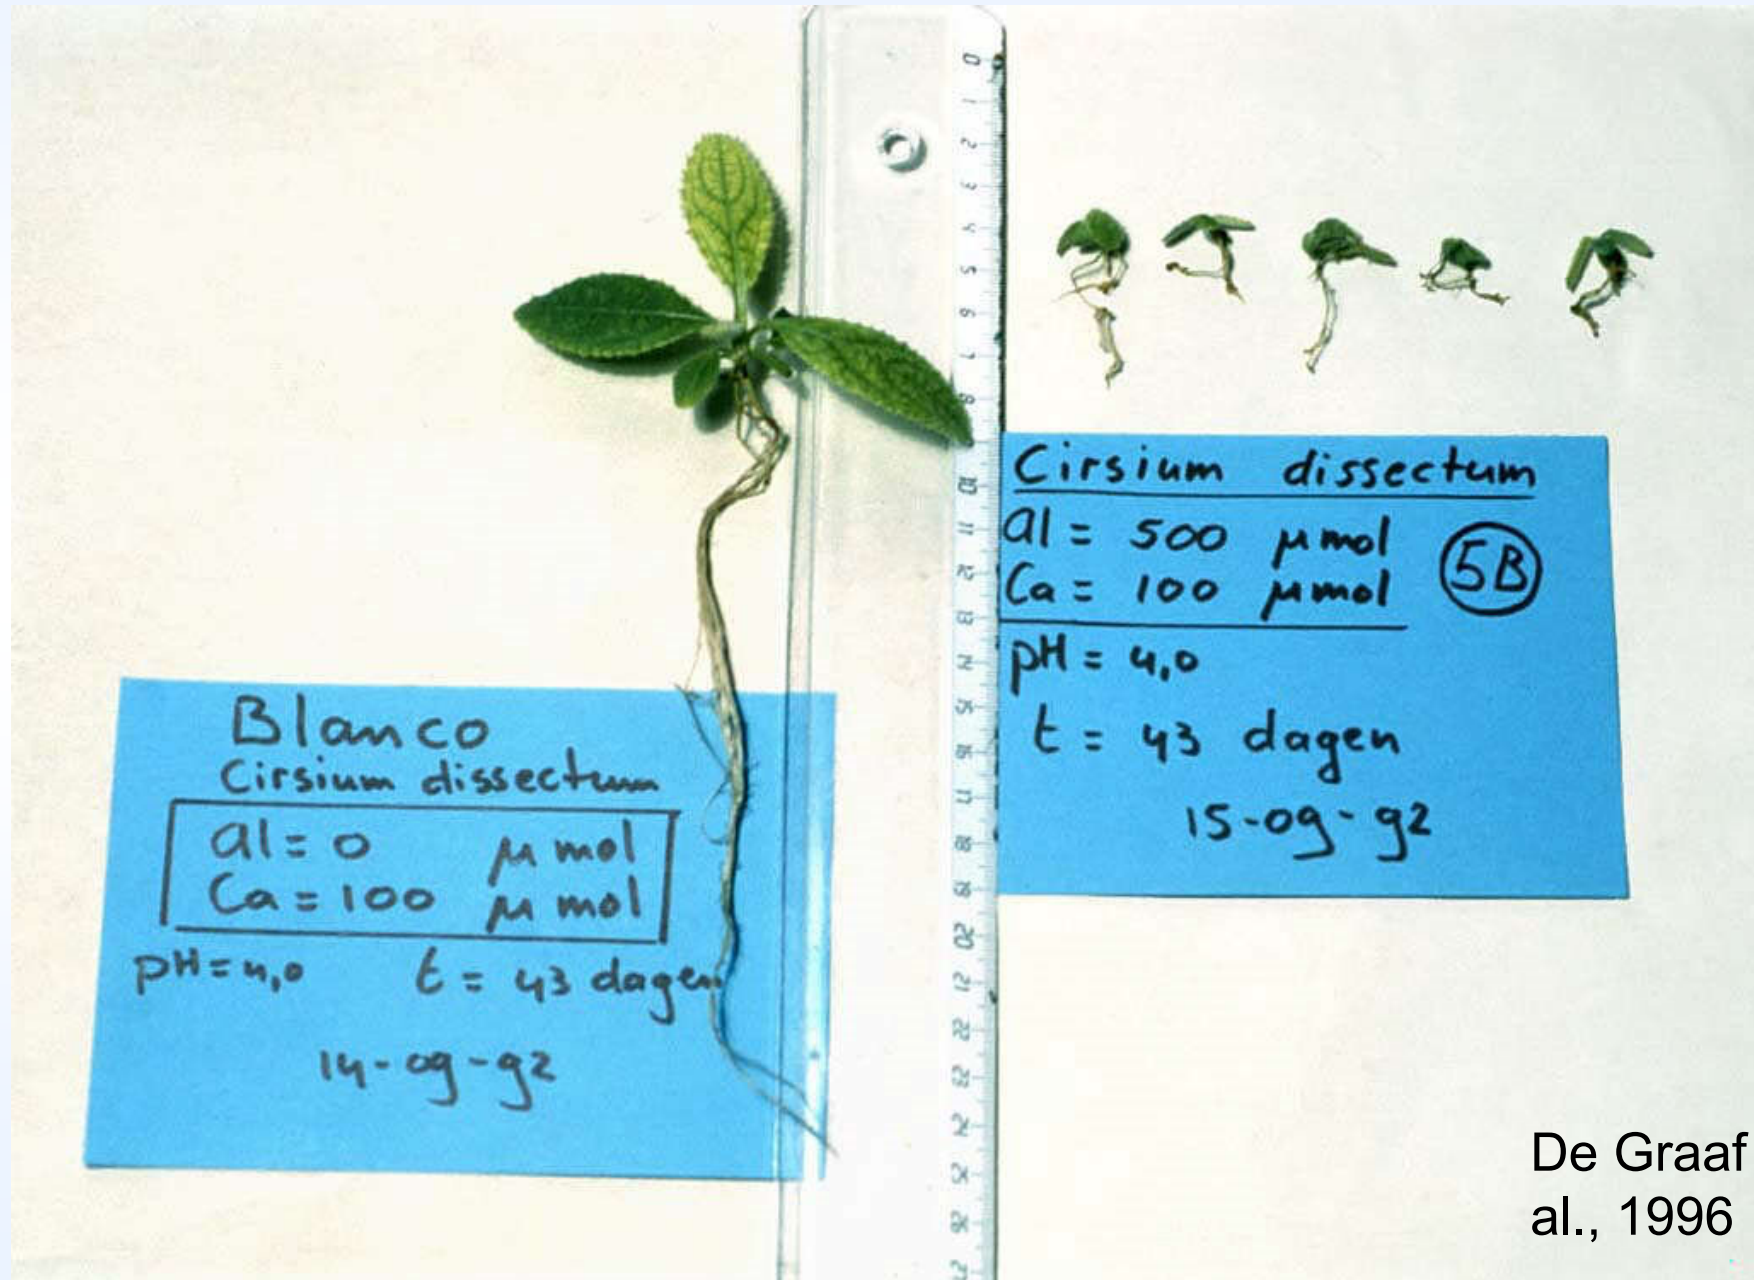 Blanco
Cirsium dissectum
Al = 0 μmol
Ca = 100 μmol
pH = 4,0 t = 43 dagen
14-09-92
0
1
2
3
4
5
6
7
8
10
11
12
13
14
15
16
17
18
19
20
21
22
23
24
25
26
27
Cirsium dissectum
Al = 500 μmol
Ca = 100 μmol
5B
pH = 4,0
t = 43 dagen
15-09-92
De Graaf
al., 1996